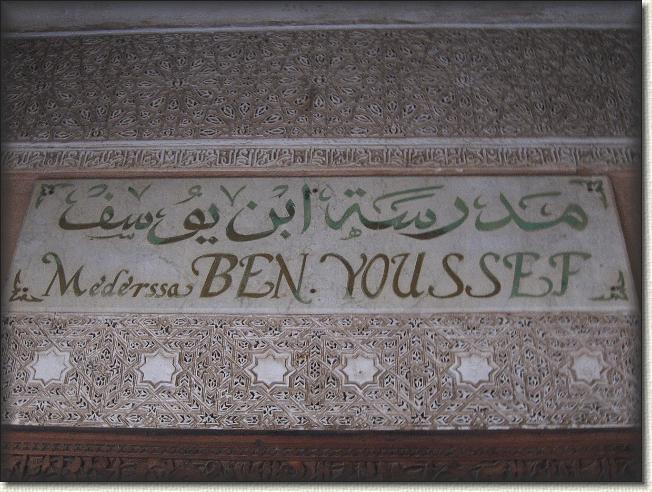 مدرسة ابن يوسف
Médérssa BEN. YOUSSEF